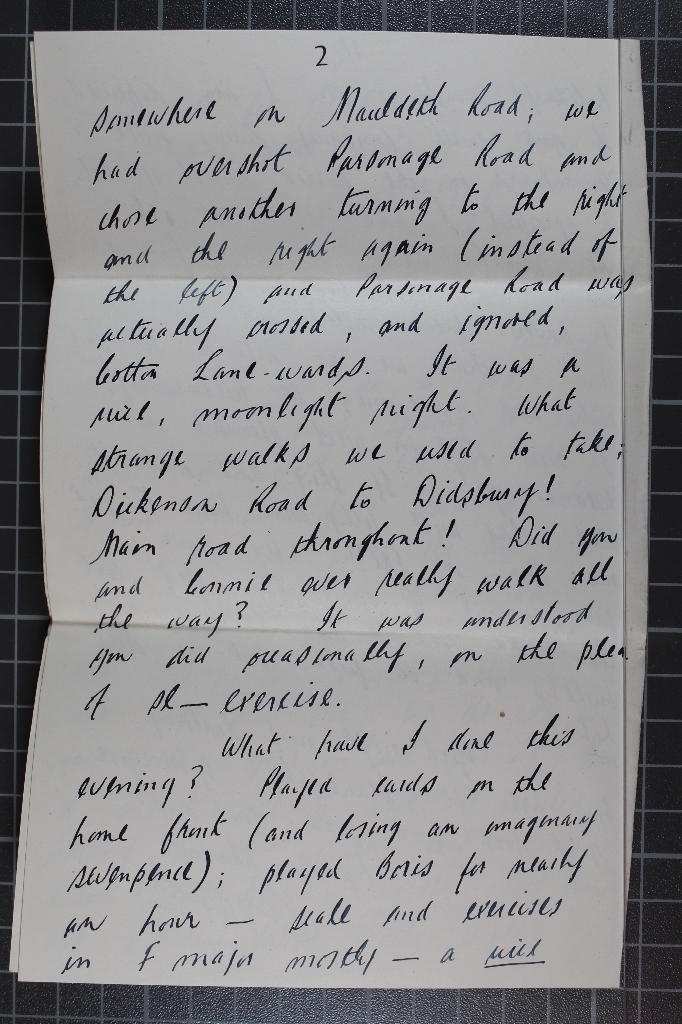 2
somewhere on Mauldeth Road; we
had overshot Parsonage Road and
chose another turning to the right
and the right again (instead of
the left) and Parsonage Road was
actually crossed, and ignored,
Cotton Lane-wards. It was a
nice, moonlight night. What
strange walks we used to take;
Dickenson Road to Didsbury!
Main road throughout! Did you
and Connie ever really walk all
the way? It was understood
you did occasionally, on the plea
of se— exercise.
What have I done this
evening? Played cards on the
home front (and losing an imaginary
sevenpence); played Boris for nearly
an hour — scale and exercises
in F major mostly — a nice